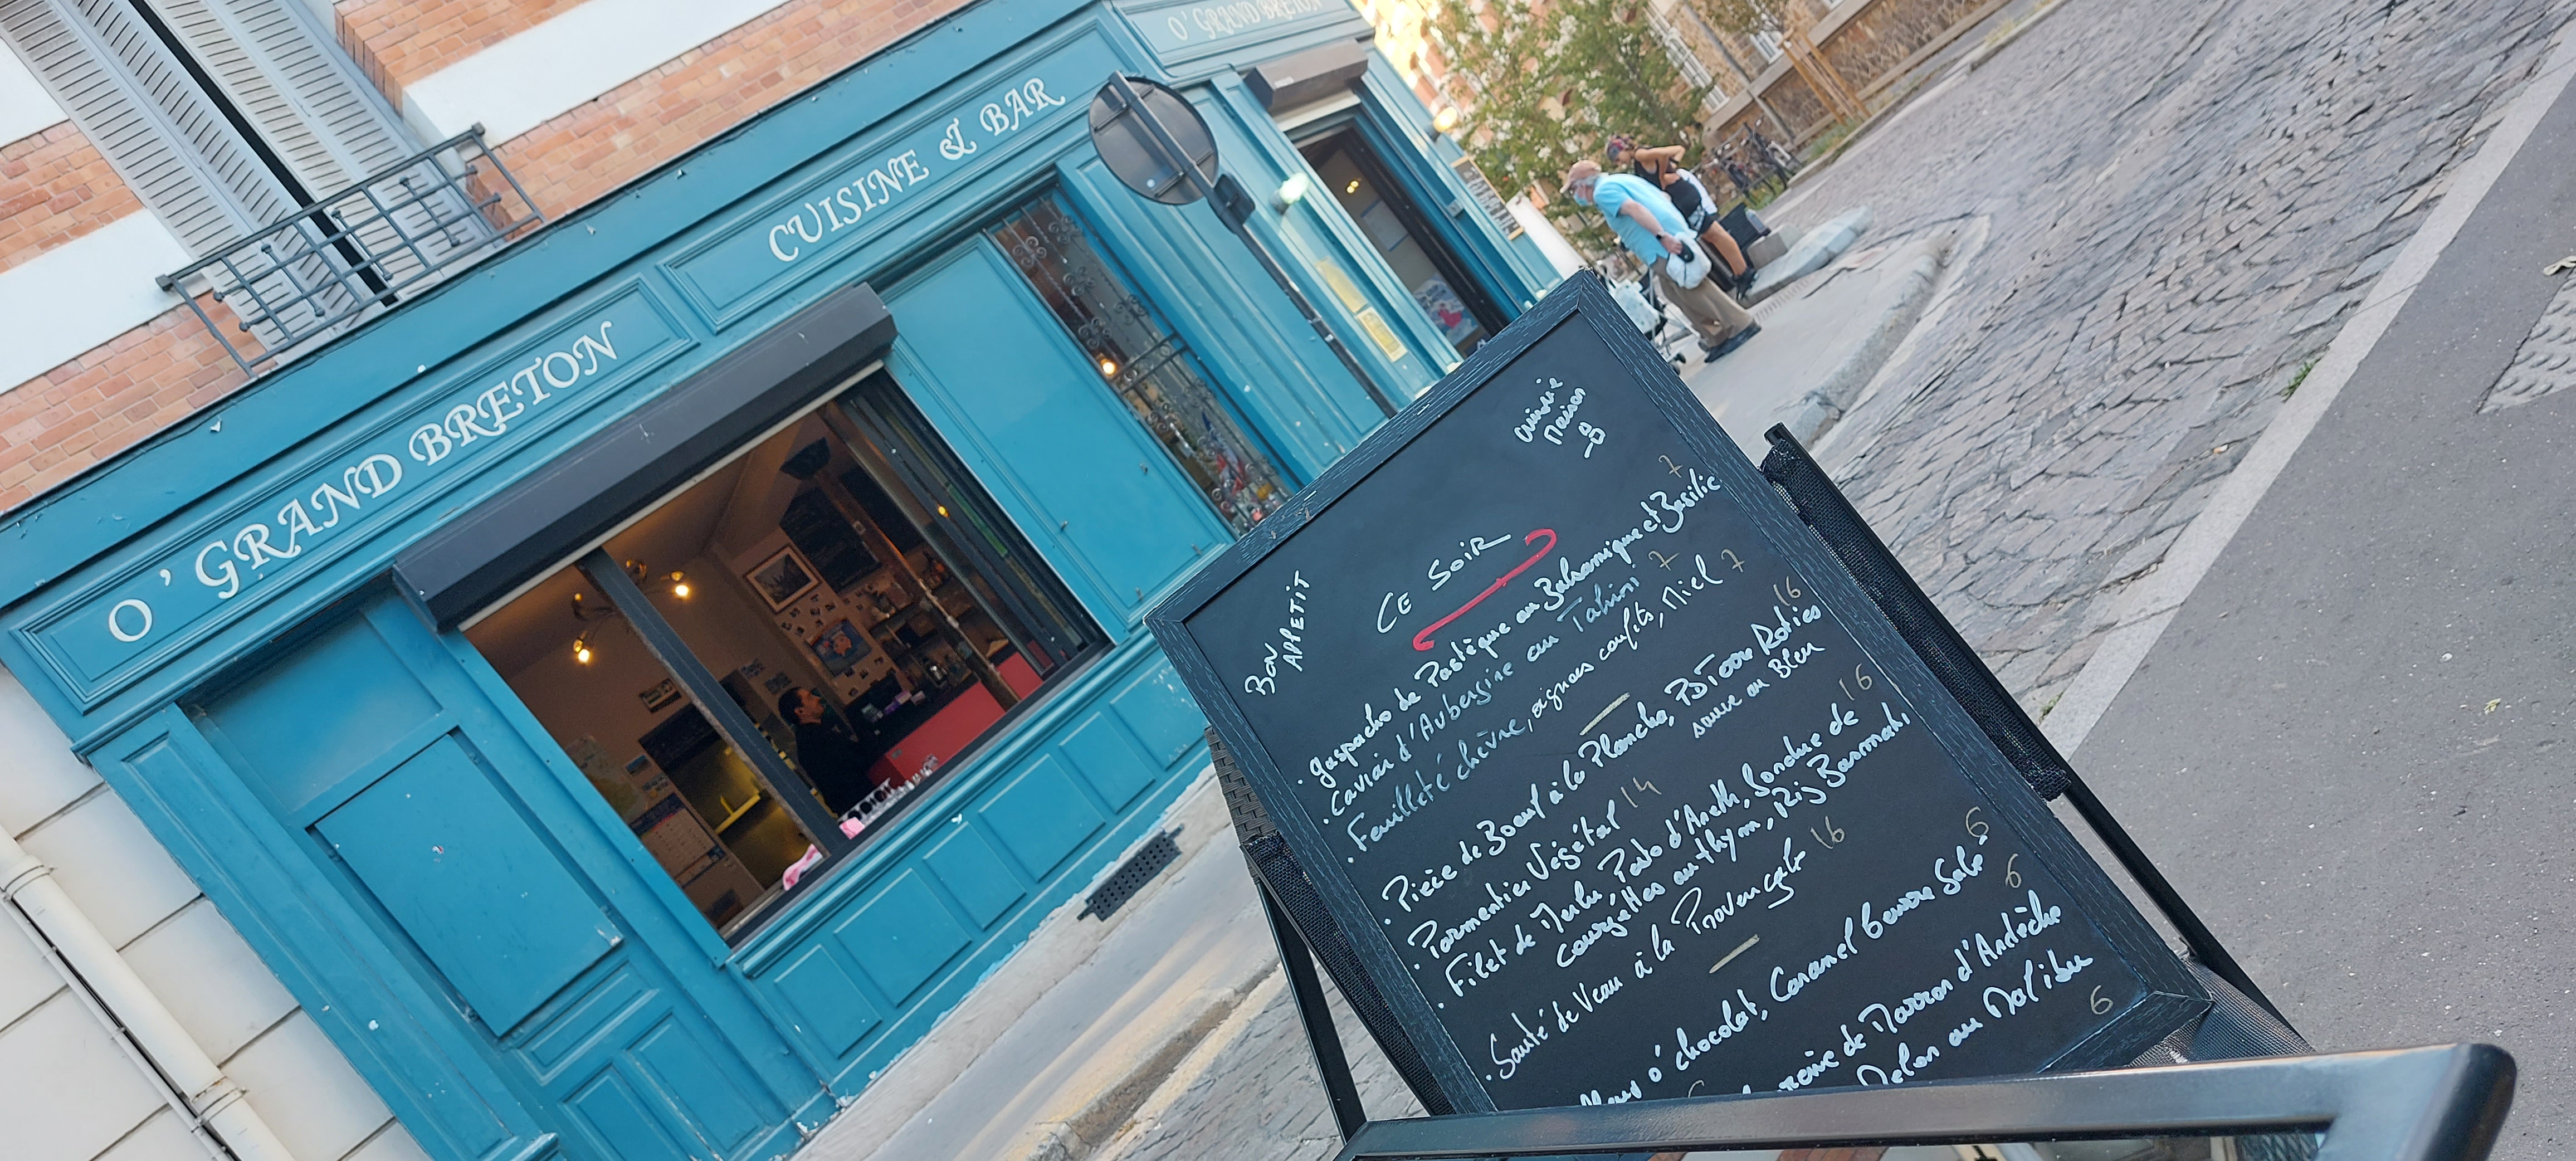 O' GRAND BRETON
CUISINE & BAR
O' GRAND BRETON
cuisine
Maison
BON
APPETIT
CE SOIR
. Gaspacho de Pastèque au Balsamique et Basilic 7
. Caviar d'Aubergine au Tahini 7
. Feuilleté chèvre, oignons confits, Miel 7
. Pièce de Boeuf à la Plancha, Patate Roties 16
sauce au Bleu
. Parmentier Végétal 14
. Filet de Merlu, Pesto d'Aneth, fondue de 16
courgettes au thym, Riz Basmati
. Sauté de Veau à la Provençale 16
o' chocolat, Caramel beurre Salé 6
crème de Marron d'Ardèche 6
Melon au Malibu 6